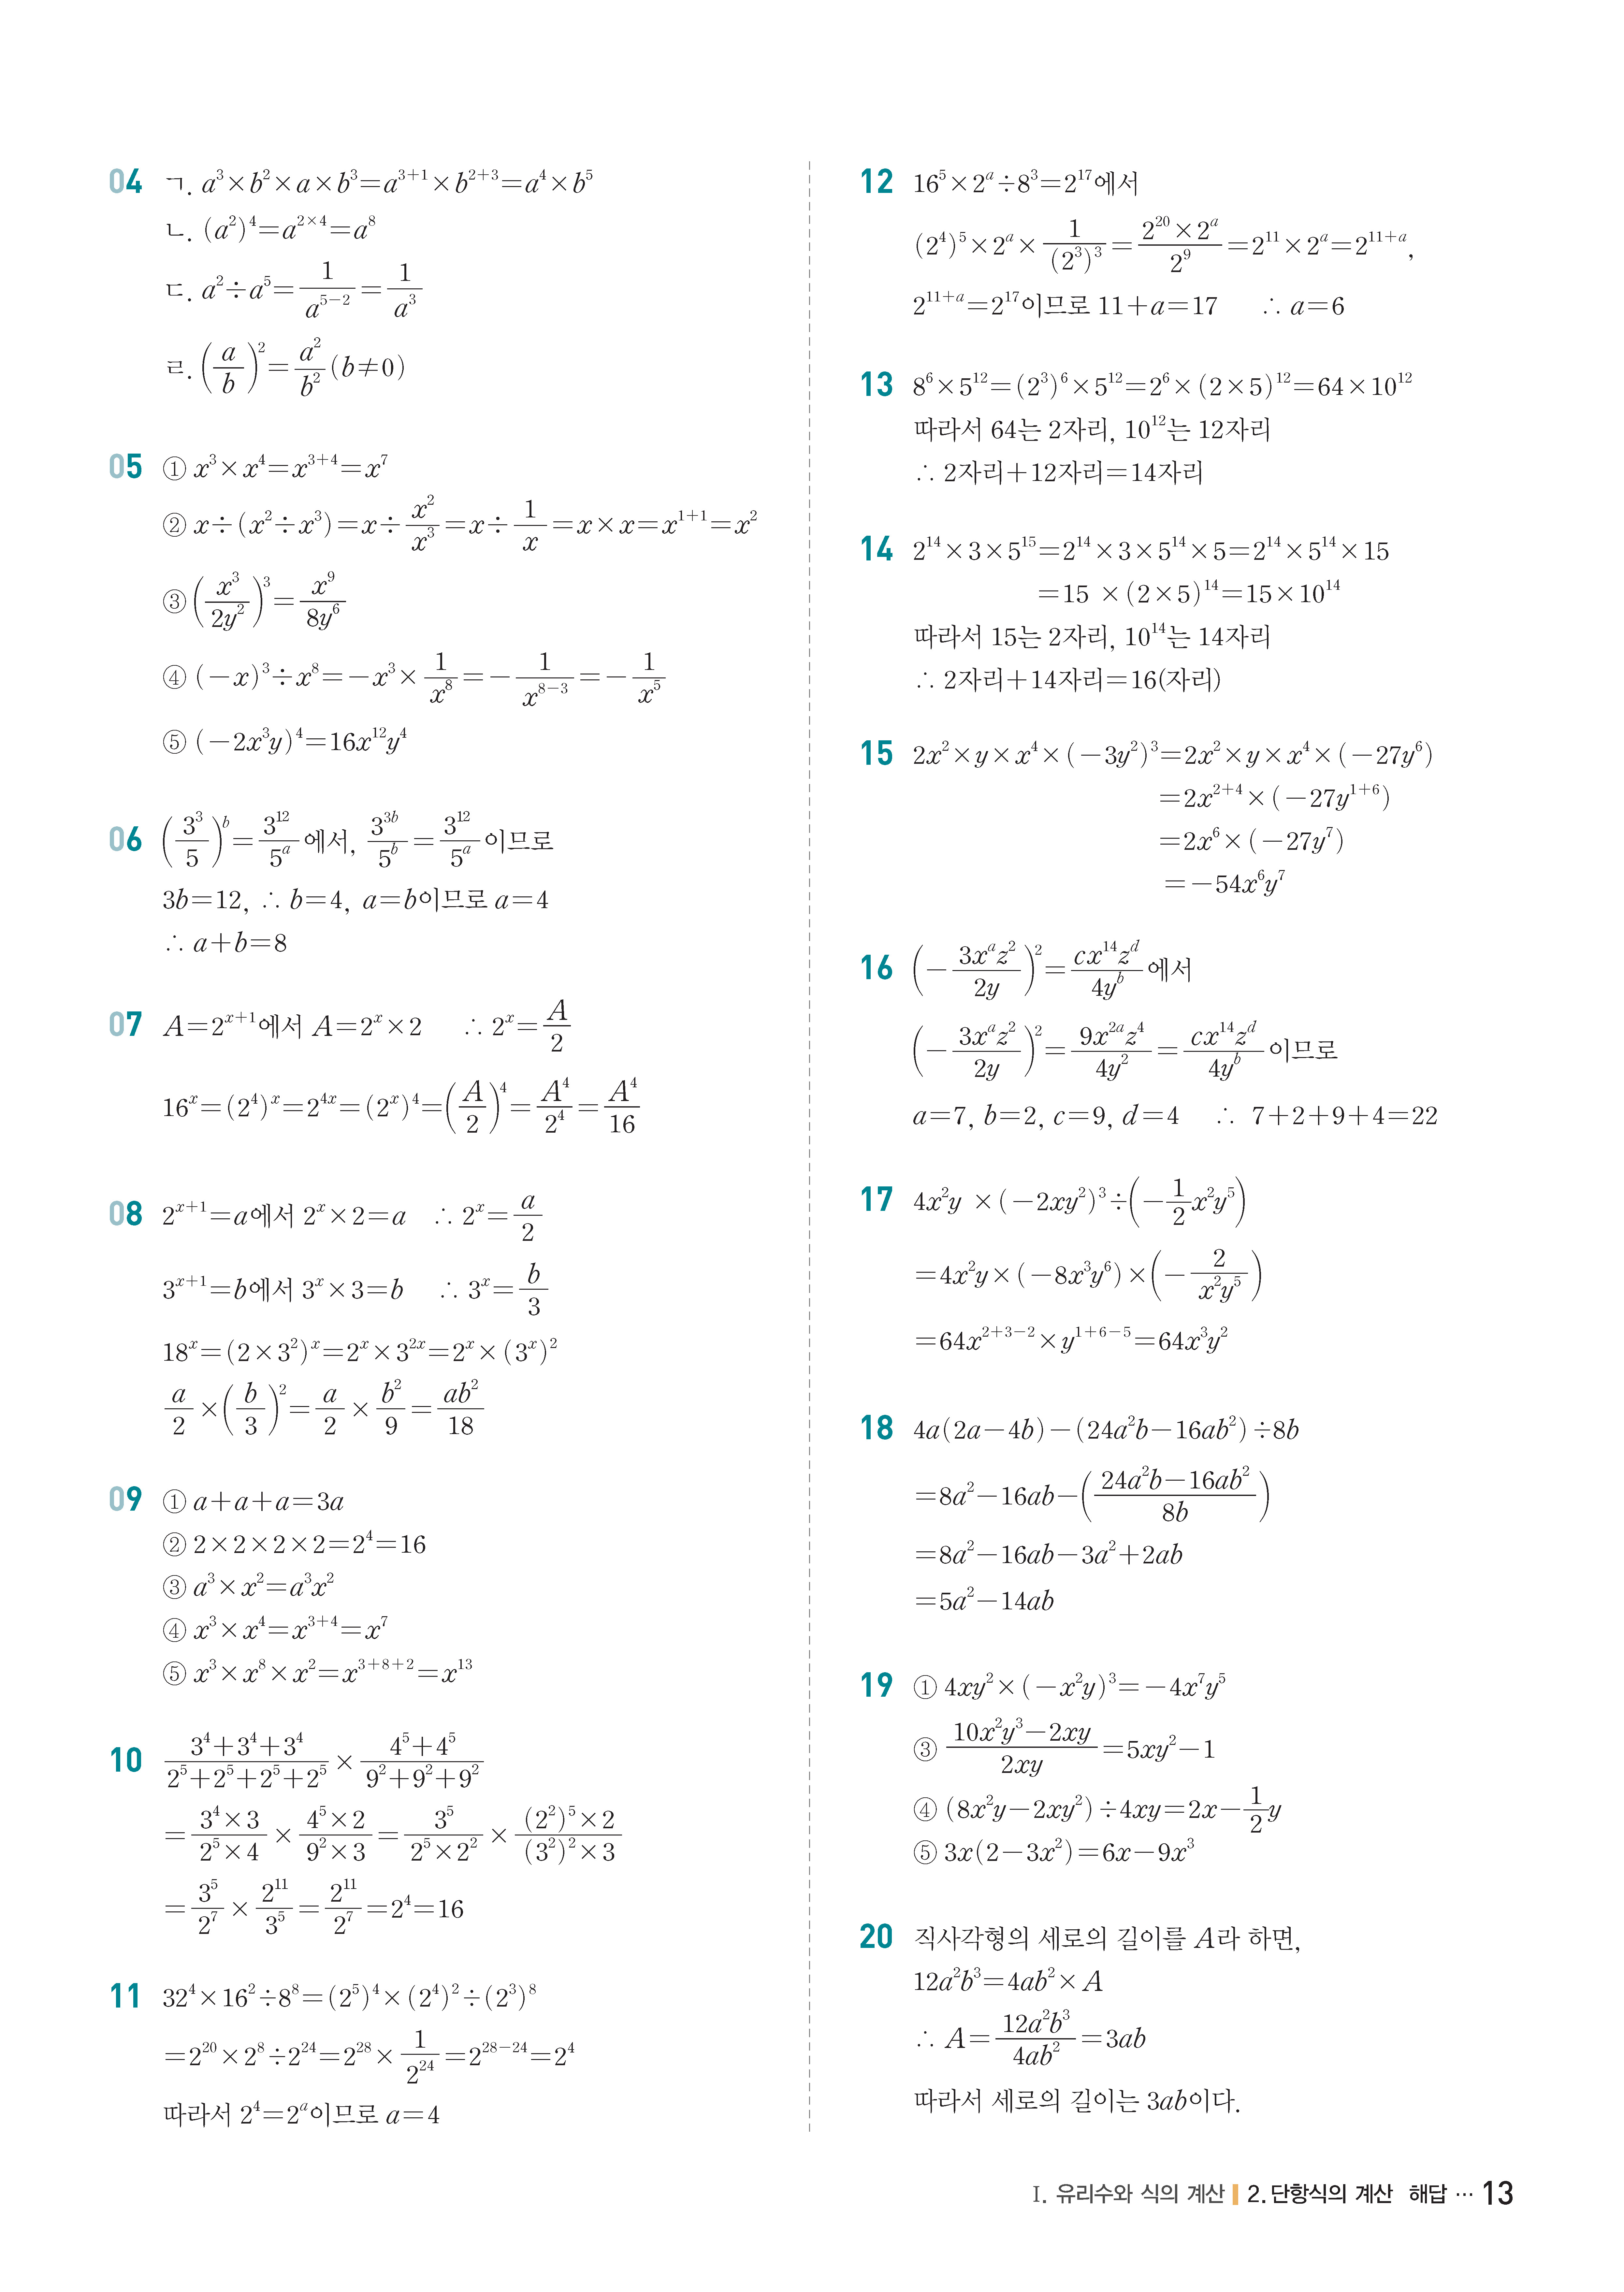 04 ㄱ. a³×b²×a×b³=a³⁺¹×b²⁺³=a⁴×b⁵
ㄴ. (a²)⁴=a²ˣ⁴=a⁸
ㄷ. a²÷a⁵=1/a⁵⁻²=1/a³
ㄹ. (a/b)²=a²/b²(b≠0)
05 ① x³×x⁴=x³⁺⁴=x⁷
② x÷(x²÷x³)=x÷x²/x³=x÷1/x=x×x=x¹⁺¹=x²
③ (x³/2y²)³=x⁹/8y⁶
④ (-x)³÷x⁸=-x³×1/x⁸=-1/x⁸⁻³=-1/x⁵
⑤ (-2x³y)⁴=16x¹²y⁴
06 (3³/5)^b=3¹²/5^a에서, 3^(3b)/5^b=3¹²/5^a이므로
3b=12, ∴ b=4, a=b이므로 a=4
∴ a+b=8
07 A=2^(x+1)에서 A=2^x×2 ∴ 2^x=A/2
16^x=(2⁴)^x=2^(4x)=(2^x)⁴=(A/2)⁴=A⁴/2⁴=A⁴/16
08 2^(x+1)=a에서 2^x×2=a ∴ 2^x=a/2
3^(x+1)=b에서 3^x×3=b ∴ 3^x=b/3
18^x=(2×3²)^x=2^x×3^(2x)=2^x×(3^x)²
a/2×(b/3)²=a/2×b²/9=ab²/18
09 ① a+a+a=3a
② 2×2×2×2=2⁴=16
③ a³×x²=a³x²
④ x³×x⁴=x³⁺⁴=x⁷
⑤ x³×x⁸×x²=x³⁺⁸⁺²=x¹³
10 (3⁴+3⁴+3⁴)/(2⁵+2⁵+2⁵+2⁵)×(4⁵+4⁵)/(9²+9²+9²)
=(3⁴×3)/(2⁵×4)×(4⁵×2)/(9²×3)=3⁵/(2⁵×2²)×((2²)⁵×2)/((3²)²×3)
=3⁵/2⁷×2¹¹/3⁵=2¹¹/2⁷=2⁴=16
11 32⁴×16²÷8⁸=(2⁵)⁴×(2⁴)²÷(2³)⁸
=2²⁰×2⁸÷2²⁴=2²⁸×1/2²⁴=2²⁸⁻²⁴=2⁴
따라서 2⁴=2^a이므로 a=4
12 16⁵×2^a÷8³=2¹⁷에서
(2⁴)⁵×2^a×1/(2³)³=(2²⁰×2^a)/2⁹=2¹¹×2^a=2^(11+a),
2^(11+a)=2¹⁷이므로 11+a=17 ∴ a=6
13 8⁶×5¹²=(2³)⁶×5¹²=2⁶×(2×5)¹²=64×10¹²
따라서 64는 2자리, 10¹²는 12자리
∴ 2자리+12자리=14자리
14 2¹⁴×3×5¹⁵=2¹⁴×3×5¹⁴×5=2¹⁴×5¹⁴×15
=15 ×(2×5)¹⁴=15×10¹⁴
따라서 15는 2자리, 10¹⁴는 14자리
∴ 2자리+14자리=16(자리)
15 2x²×y×x⁴×(-3y²)³=2x²×y×x⁴×(-27y⁶)
=2x²⁺⁴×(-27y¹⁺⁶)
=2x⁶×(-27y⁷)
=-54x⁶y⁷
16 (-3x^a z²/2y)²=cx¹⁴z^d/4y^b에서
(-3x^a z²/2y)²=9x^(2a)z⁴/4y²=cx¹⁴z^d/4y^b이므로
a=7, b=2, c=9, d=4 ∴ 7+2+9+4=22
17 4x²y ×(-2xy²)³÷(-1/2x²y⁵)
=4x²y×(-8x³y⁶)×(-2/x²y⁵)
=64x²⁺³⁻²×y¹⁺⁶⁻⁵=64x³y²
18 4a(2a-4b)-(24a²b-16ab²)÷8b
=8a²-16ab-((24a²b-16ab²)/8b)
=8a²-16ab-3a²+2ab
=5a²-14ab
19 ① 4xy²×(-x²y)³=-4x⁷y⁵
③ (10x²y³-2xy)/2xy=5xy²-1
④ (8x²y-2xy²)÷4xy=2x-1/2y
⑤ 3x(2-3x²)=6x-9x³
20 직사각형의 세로의 길이를 A라 하면,
12a²b³=4ab²×A
∴ A=12a²b³/4ab²=3ab
따라서 세로의 길이는 3ab이다.
I. 유리수와 식의 계산 2. 단항식의 계산 해답 … 13